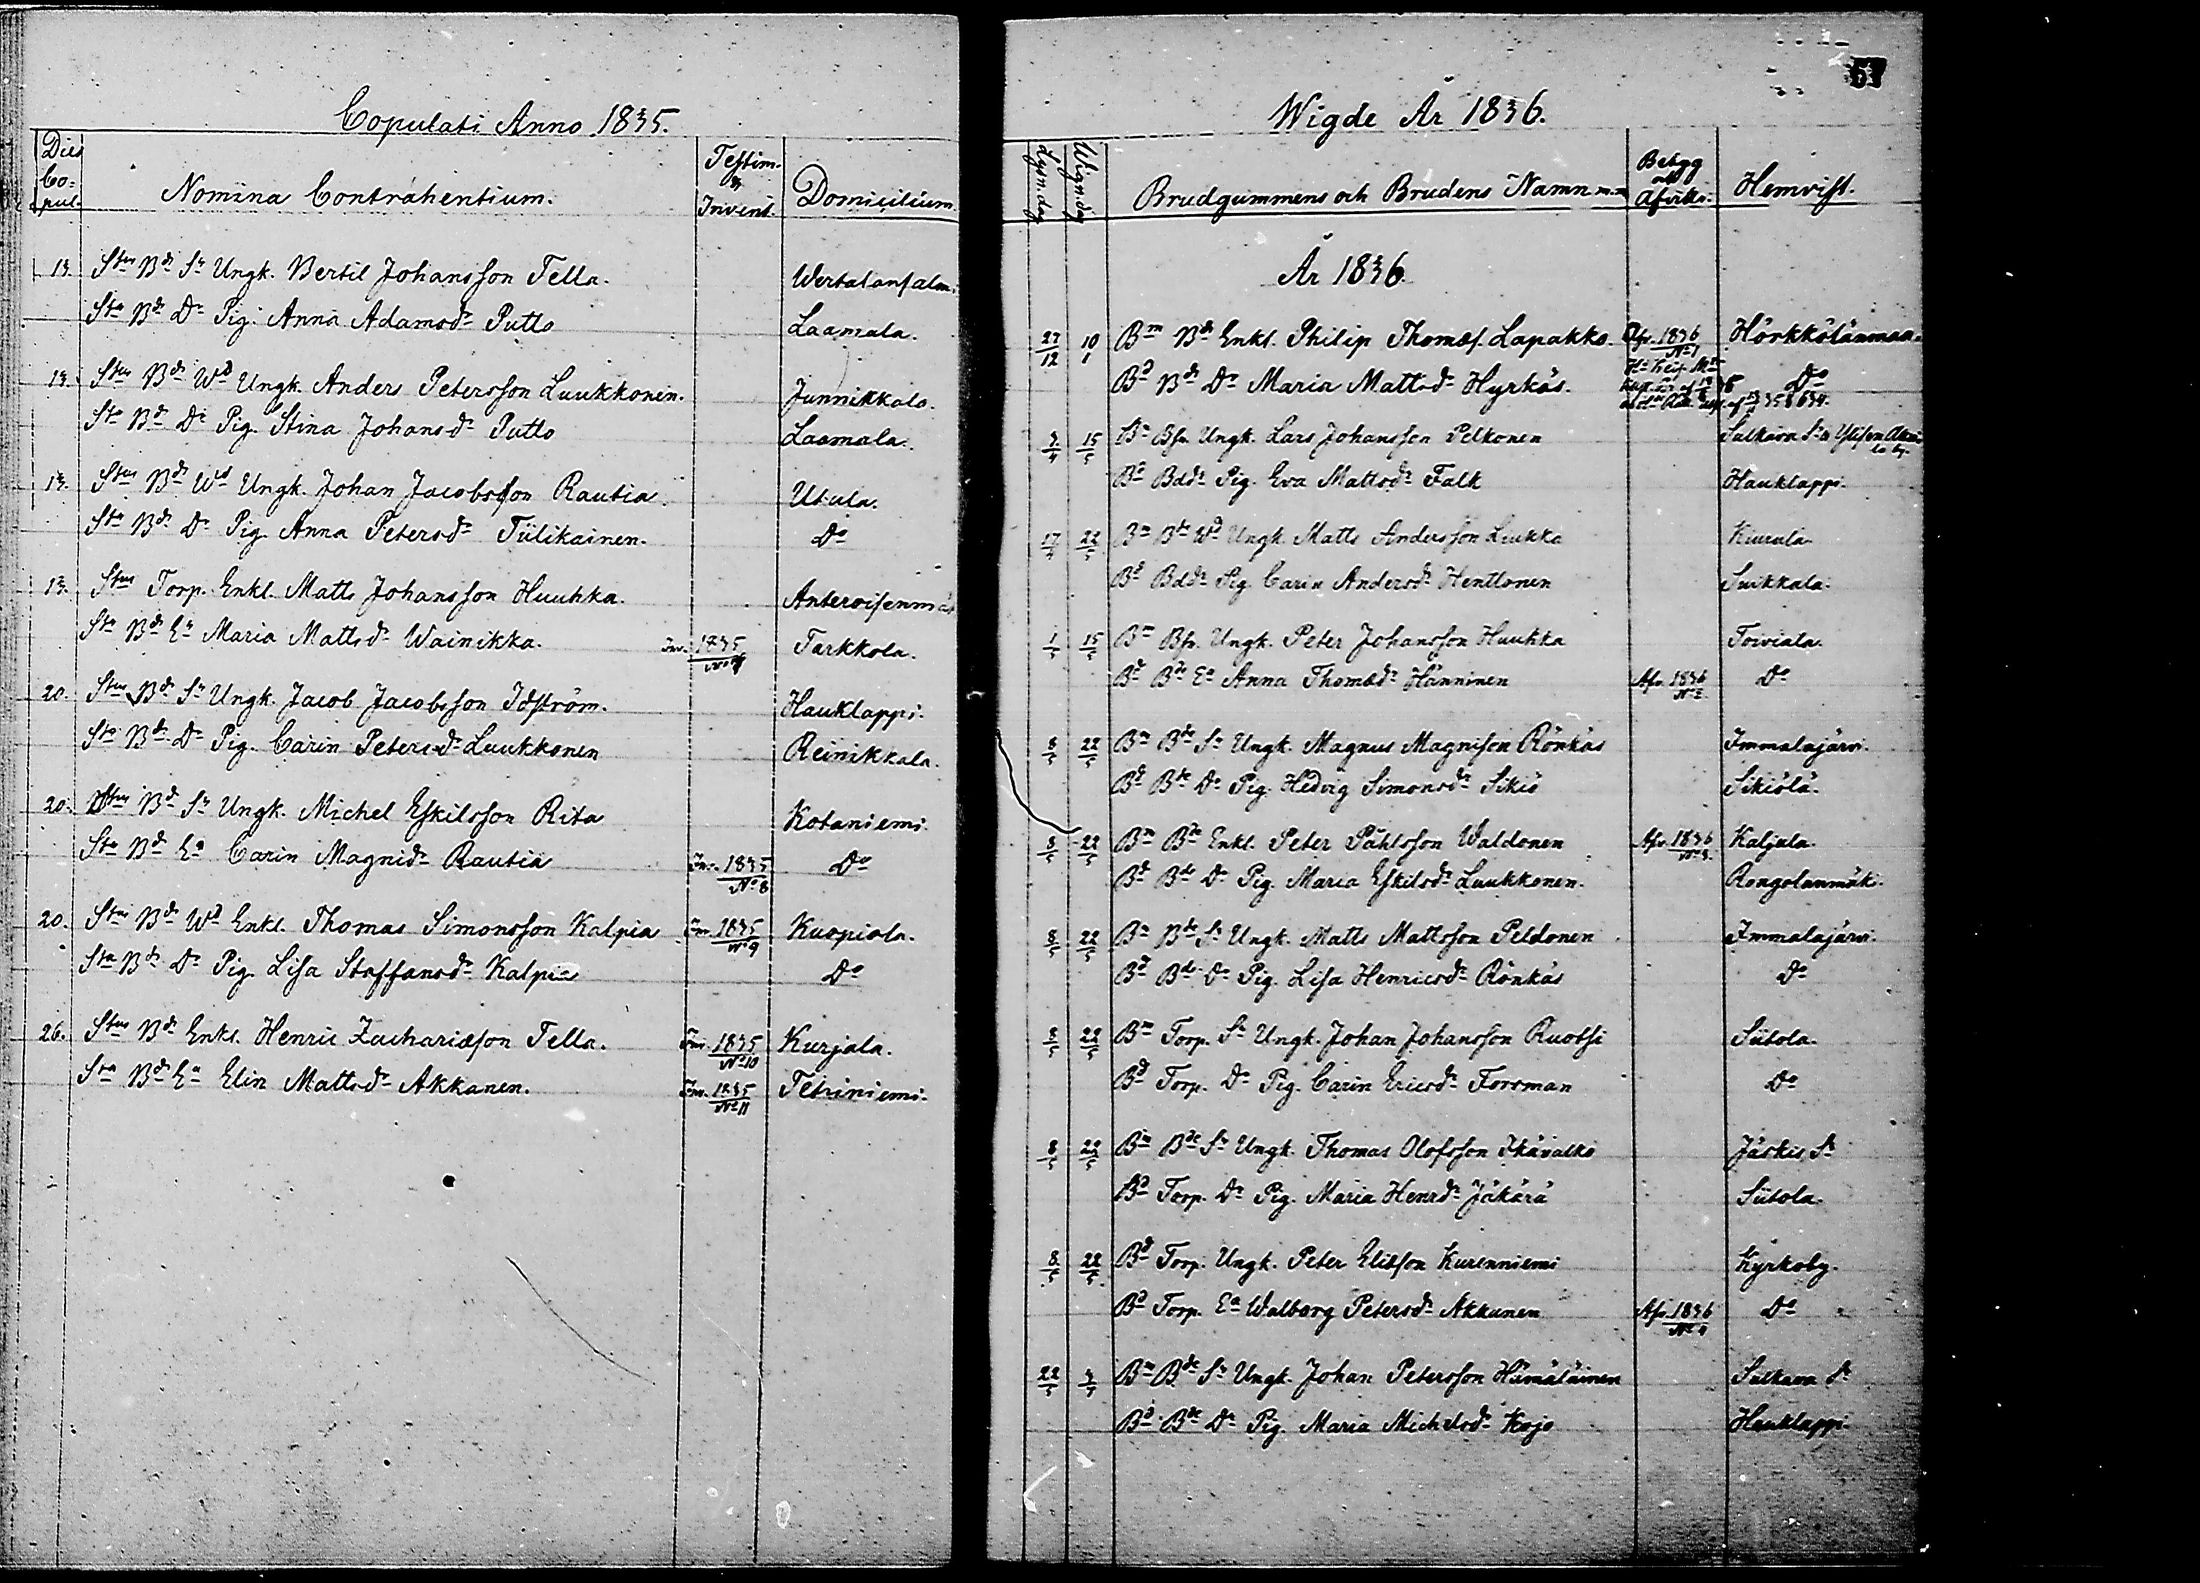 Copulati Anno 1835.
Dies Co= pul. Nomina Contrahentium. Testim. & Invent. Domicilium
13. Stus Bds Sn Ungk. Bertil Johansson Tella.
Sta Bds Dr Pig. Anna Adamsdr Putto Laamala.
13. Stus Bds Wd Ungk. Anders Petersson Luukkonen. Junnikkala.
Sta Bds Dr Pig. Stina Johansdr Putto Laamala.
13. Stus Bds Wd Ungk. Johan Jacobsson Rautia. Utula.
Sta Bds Dr Pig. Anna Petersdr Tiilikainen. Do
13. Stus Torp. Enkl. Matts Johansson Huuhka.
Sta Bds Ea Maria Mattsdr Wainikka. Inv. 1835 Tarkkola.
20. Stus Bds Sn Ungk. Jacob Jacobsson Idström. Hauklappi.
Sta Bds Dr Pig. Carin Petersdr Luukkonen Reinikkala.
20. Stus Bds Sn Ungk. Michel Eskilsson Rita Kotaniemi.
Sta Bds Ea Carin Magnidr Rautia Inv. 1835 No 8 Do
20. Stus Bds Wd Enkl. Thomas Simonsson Kalpia Inv. 1835 No 9 Kuopiala.
Sta Bds Dr Pig. Lisa Staffansdr Kalpia Do
26. Stus Bds Enkl. Henric Zachariæson Tella. Inv. 1835 No 10 Kurjala.
Sta Bds Ea Elin Mattsdr Akkanen. Inv. 1835 No 11 Tetriniemi.
57
Wigde År 1836.
Lysn.dag Wign.dag Brudgummens och Brudens Namn m.m Betyg och Afvitt. Hemvist.
År 1836.
27/12 10/1 Bm Bds Enkl. Philip Thomæs. Lapakko. Afv. 1836 No 1 Hörkkölänmaa.
Bd Bds Dr Maria Mattsdr Hyrkäs. Do
15/5 Bm Bfr. Ungk. Lars Johansson Pelkonen Sulkava Sn
Bd Bdds Pig. Eva Mattsdr Falk Hauklappi.
17/4 22/5 Bm Bds Wd Ungk. Matts Andersson Liukka
Bd Bdds Pig. Carin Andersdr Henttonen Suikkala.
1/5 15/5 Bm Bfr. Ungk. Peter Johansson Huuhka Toiviala.
Bd Bds Ea Anna Thomædr Hänninen Afv. 1836 No 2 Do
8/5 22/5 Bm Bds Sn Ungk. Magnus Magnison Rönkäs Immalajärvi.
Bd Bds Dr Pig. Hedvig Simonsdr Sikiö Sikiölä.
8/5 22/5 Bm Bds Enkl. Peter Påhlsson Waldonen Afv. 1836 No 3. Kaljula.
Bd Bds Dr Pig. Maria Eskilsdr Luukkonen. Rongolanmäki.
8/5 22/5 Bm Bds Sn Ungk. Matts Mattsson Peldonen Immalajärvi.
Bd Bds Dr Pig. Lisa Henricsdr Rönkäs Do
8/5 22/5 Bm Torp. Sn Ungk. Johan Johansson Ruotsi Siitola.
Bd Torp. Dr Pig. Carin Ericsdr Forsman Do
8/5 22/5 Bm Bds Sn Ungk. Thomas Olofsson Ikävalko Jäskis Sn
Bd Torp. Dr Pig. Maria Henrdr Jäkärä Siitola.
8/5 22/5 Bd Torp. Ungk. Peter Eliæson Kurenniemi Kyrkoby.
Bd Torp. Ea Walborg Petersdr Akkanen Afv. 1836 No 4 Do
22/5 Bm Bds Sn Ungk. Johan Petersson Hämäläinen Sulkava Sn
Bd Bds Dr Pig. Maria Michelsdr Kojo Hauklappi